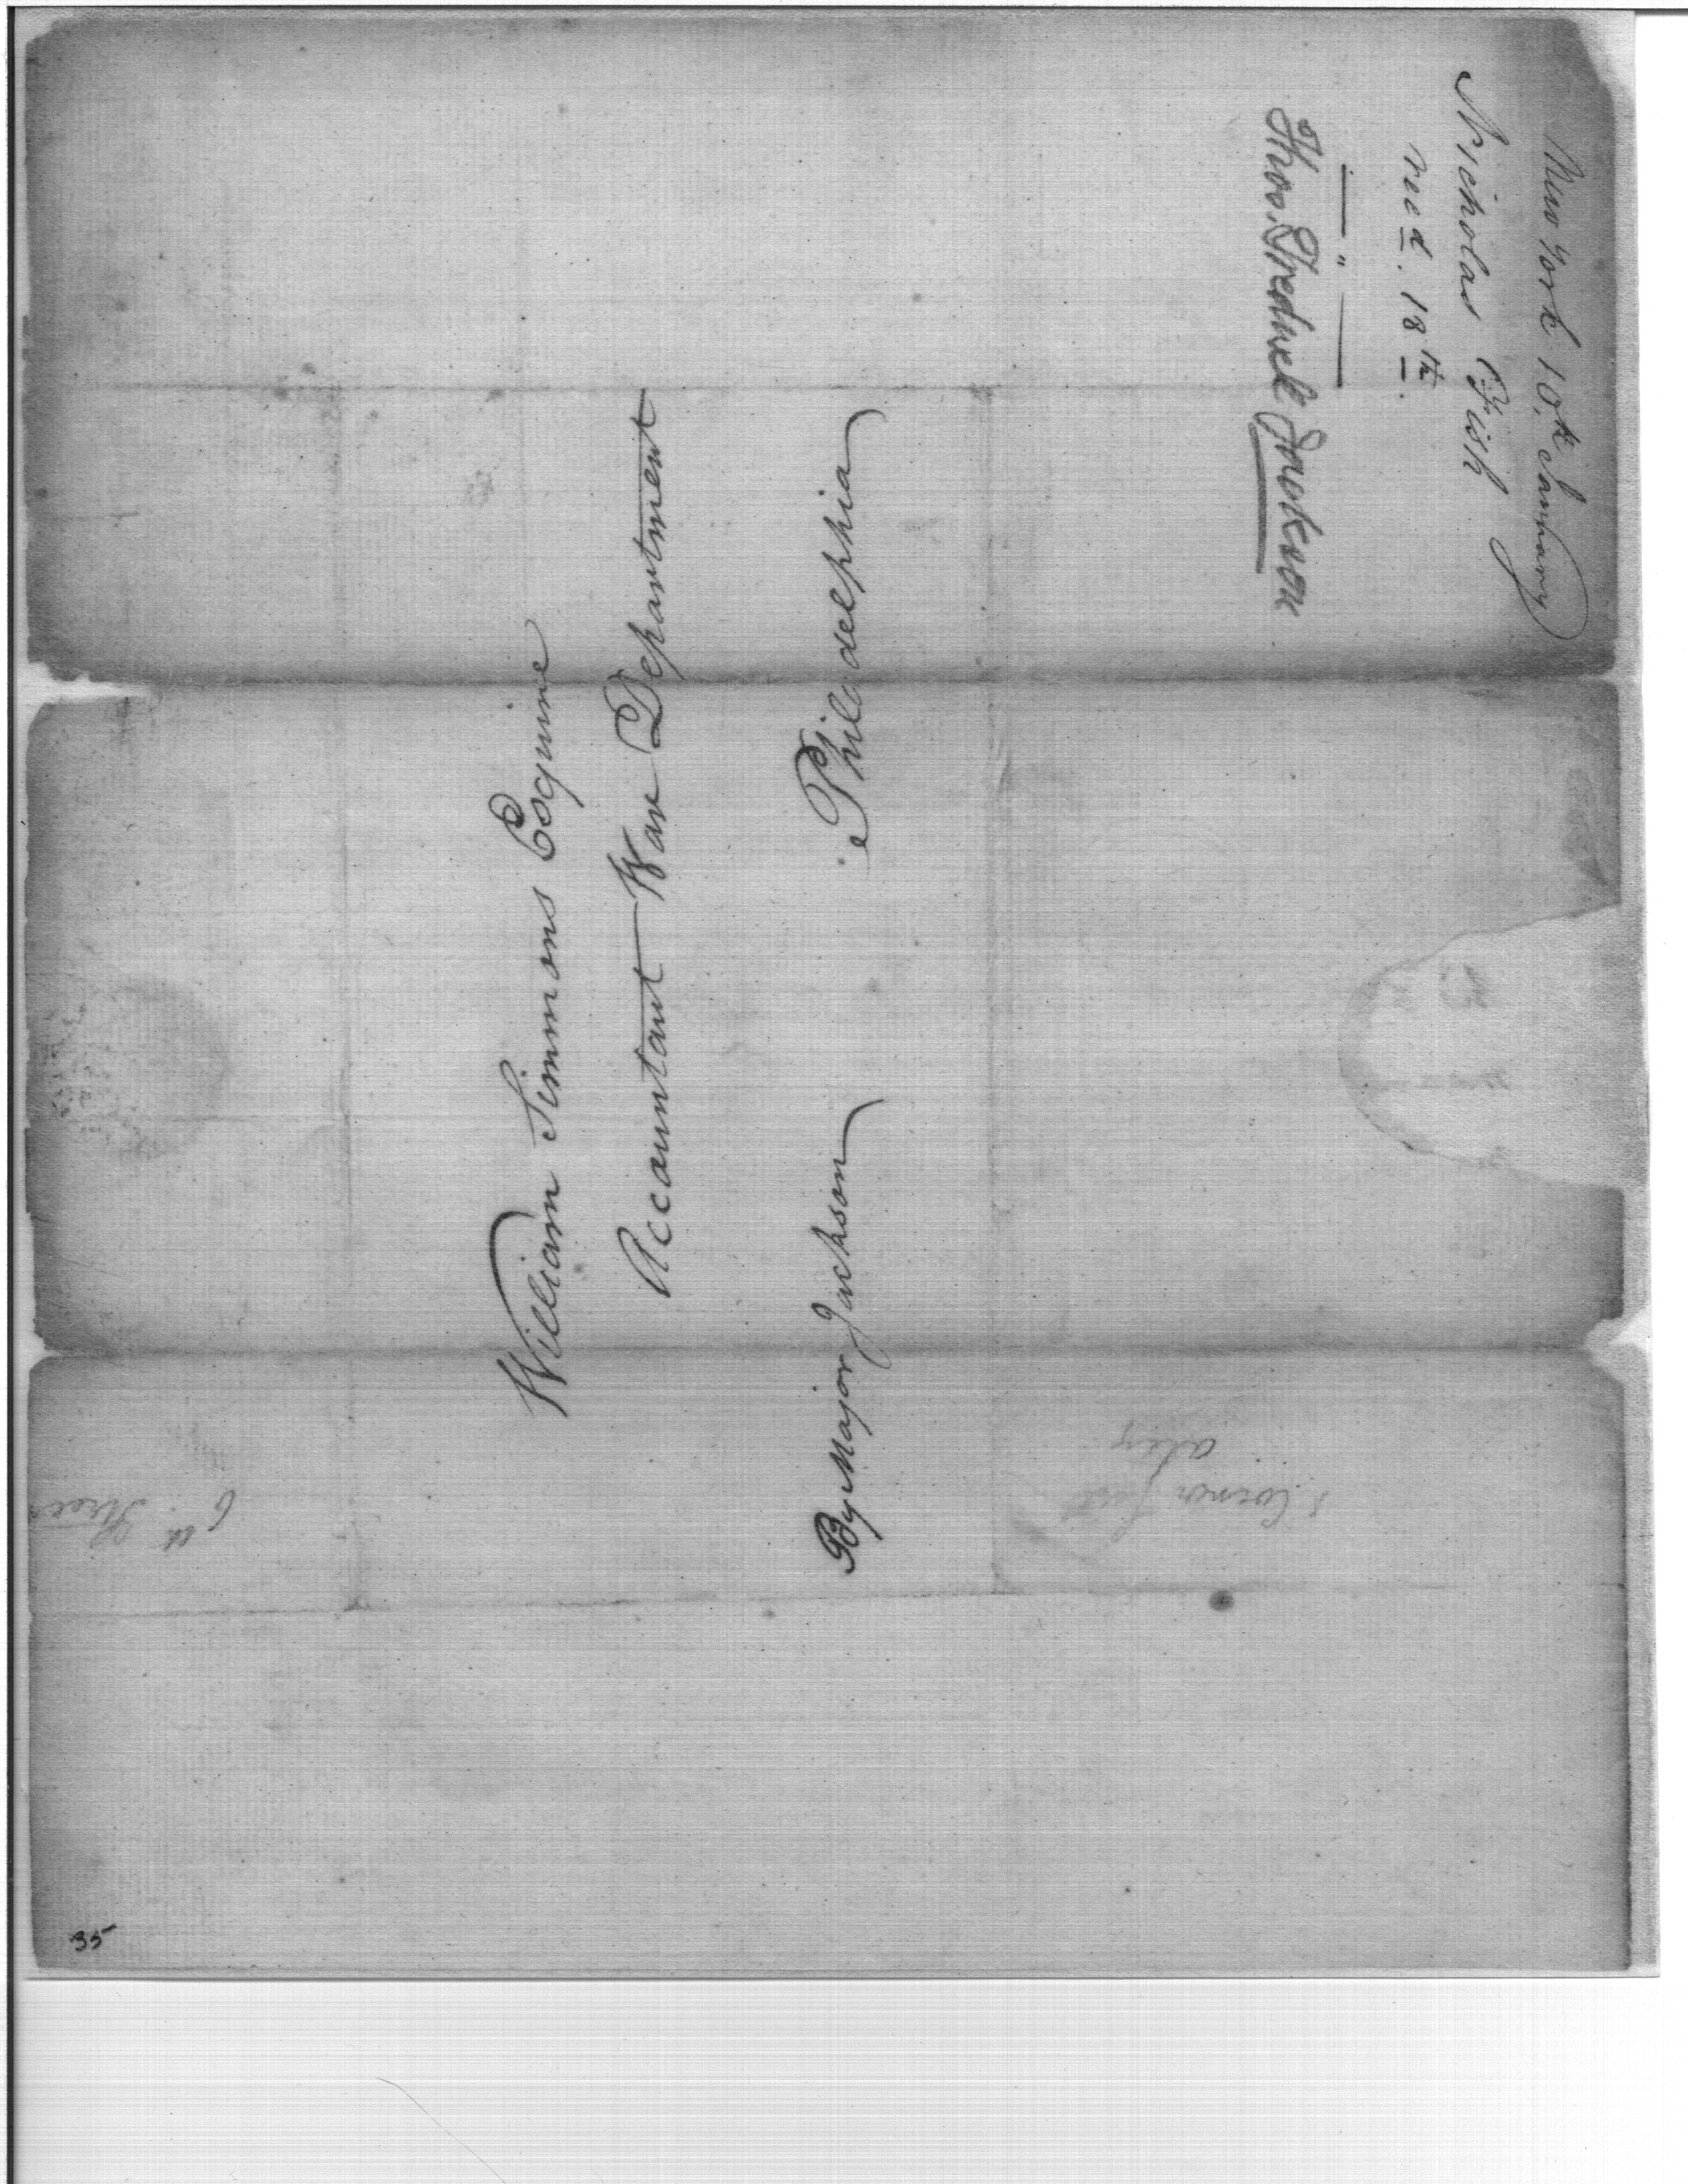 New York 10.th January
Nicholas Fish
recd. 18th.
"
Thos. Tredwel Jackson
William Simmons Esquire
Accountant War Department
Philadelphia
By Major Jackson
Corner
aley
6th Street
35